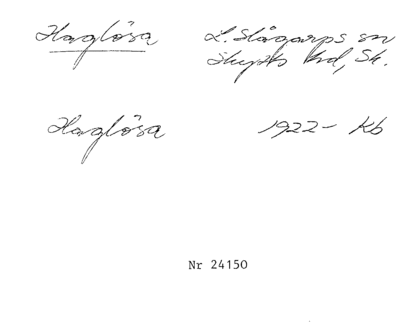 Haglösa L. Slågarps sn
Skytts hd, Sk.
Haglösa 1922- Kb
Nr 24150